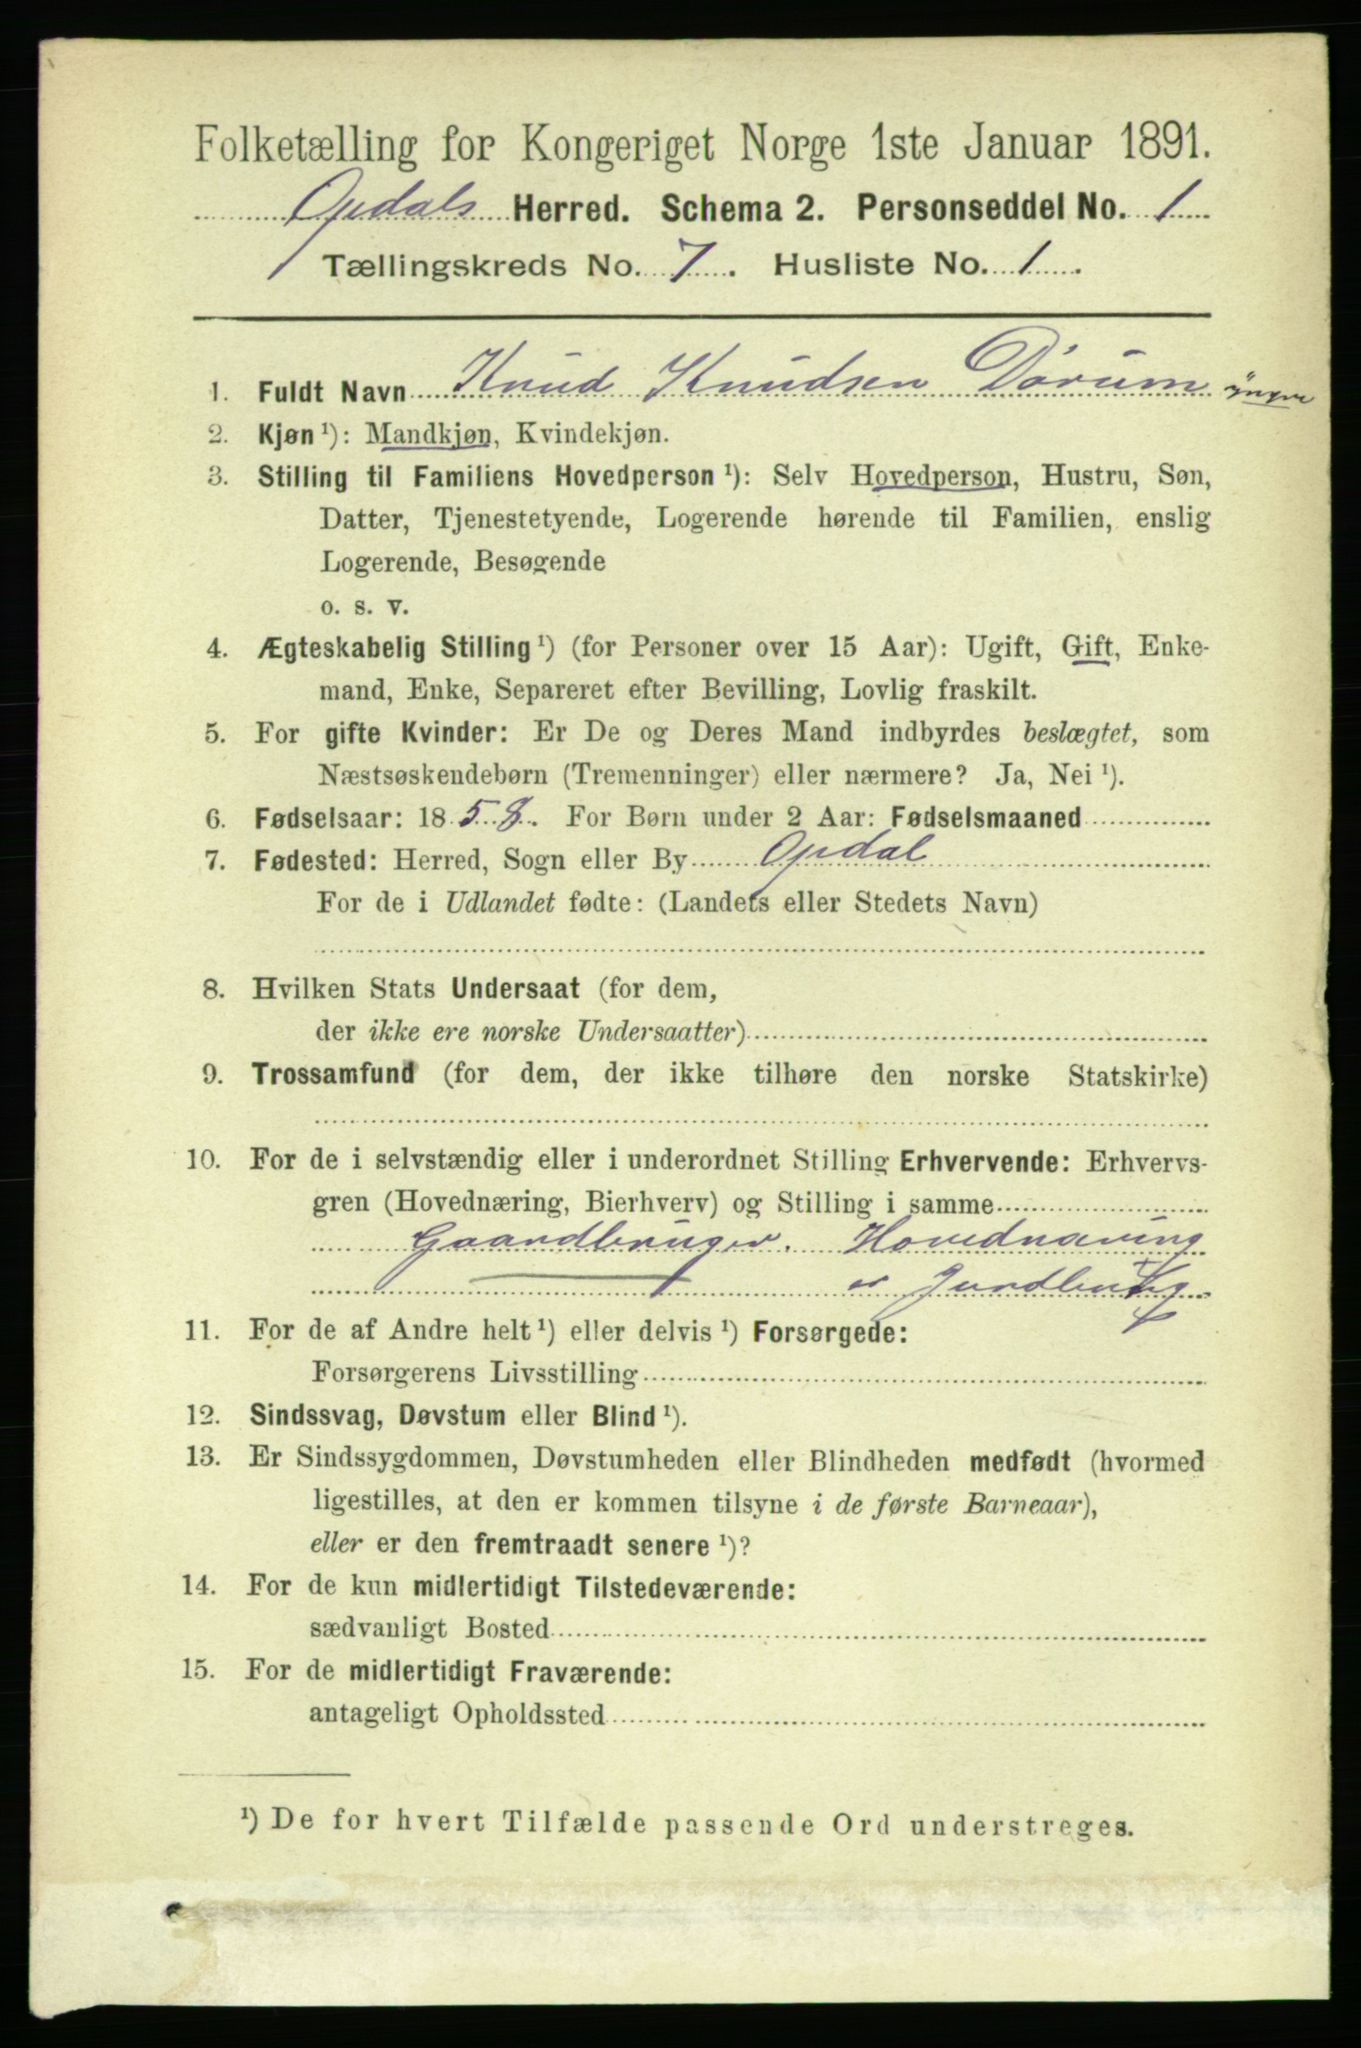 Folketælling for Kongeriget Norge 1ste Januar 1891.
Opdals Herred. Schema 2. Personseddel No. 1
Tællingskreds No. 7. Husliste No. 1.
1. Fuldt Navn Knud Knudsen Dørum yngre
2. Kjøn ¹): Mandkjøn, Kvindekjøn.
3. Stilling til Familiens Hovedperson ¹): Selv Hovedperson, Hustru, Søn,
Datter, Tjenestetyende, Logerende hørende til Familien, enslig
Logerende, Besøgende
o. s. v.
4. Ægteskabelig Stilling ¹) (for Personer over 15 Aar): Ugift, Gift, Enke-
mand, Enke, Separeret efter Bevilling, Lovlig fraskilt.
5. For gifte Kvinder: Er De og Deres Mand indbyrdes beslægtet, som
Næstsøskendebørn (Tremenninger) eller nærmere? Ja, Nei ¹).
6. Fødselsaar: 1858. For Børn under 2 Aar: Fødselsmaaned
7. Fødested: Herred, Sogn eller By Opdal
For de i Udlandet fødte: (Landets eller Stedets Navn)
8. Hvilken Stats Undersaat (for dem,
der ikke ere norske Undersaatter)
9. Trossamfund (for dem, der ikke tilhøre den norske Statskirke)
10. For de i selvstændig eller i underordnet Stilling Erhvervende: Erhvervs-
gren (Hovednæring, Bierhverv) og Stilling i samme
Gaardbruger. Hovednæring
er Jordbrug
11. For de af Andre helt ¹) eller delvis ¹) Forsørgede:
Forsørgerens Livsstilling
12. Sindssvag, Døvstum eller Blind ¹).
13. Er Sindssygdommen, Døvstumheden eller Blindheden medfødt (hvormed
ligestilles, at den er kommen tilsyne i de første Barneaar),
eller er den fremtraadt senere ¹)?
14. For de kun midlertidigt Tilstedeværende:
sædvanligt Bosted
15. For de midlertidigt Fraværende:
antageligt Opholdssted
¹) De for hvert Tilfælde passende Ord understreges.